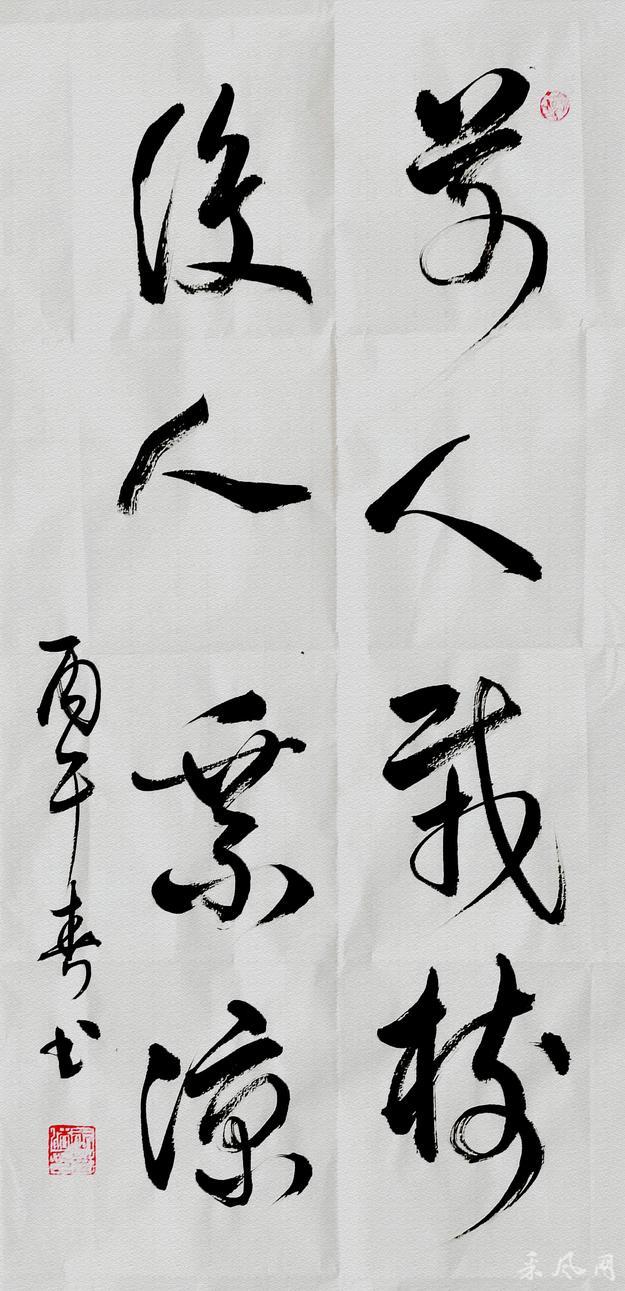 前人栽樹
後人乘涼
丙午春书
采风网